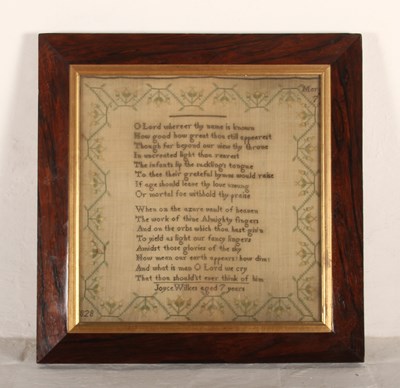 O Lord wherever thy name is known
How good how great thou still appearest
Though far beyond our view thy throne
In uncreated light thou rearest
The infants lip the sucklings tongue
To thee their grateful hymns would raise
If age should leave thy love unsung
Or mortal foe withhold thy praise
When on the azure vault of heaven
The work of thine Almighty fingers
And on the orbs which thou hast giv'n
To yield us light our fancy lingers
Amidst those glories of the sky
How mean our earth appears how dim
And what is man O Lord we cry
That thou should'st ever think of him
Joyce Willers aged 7 years